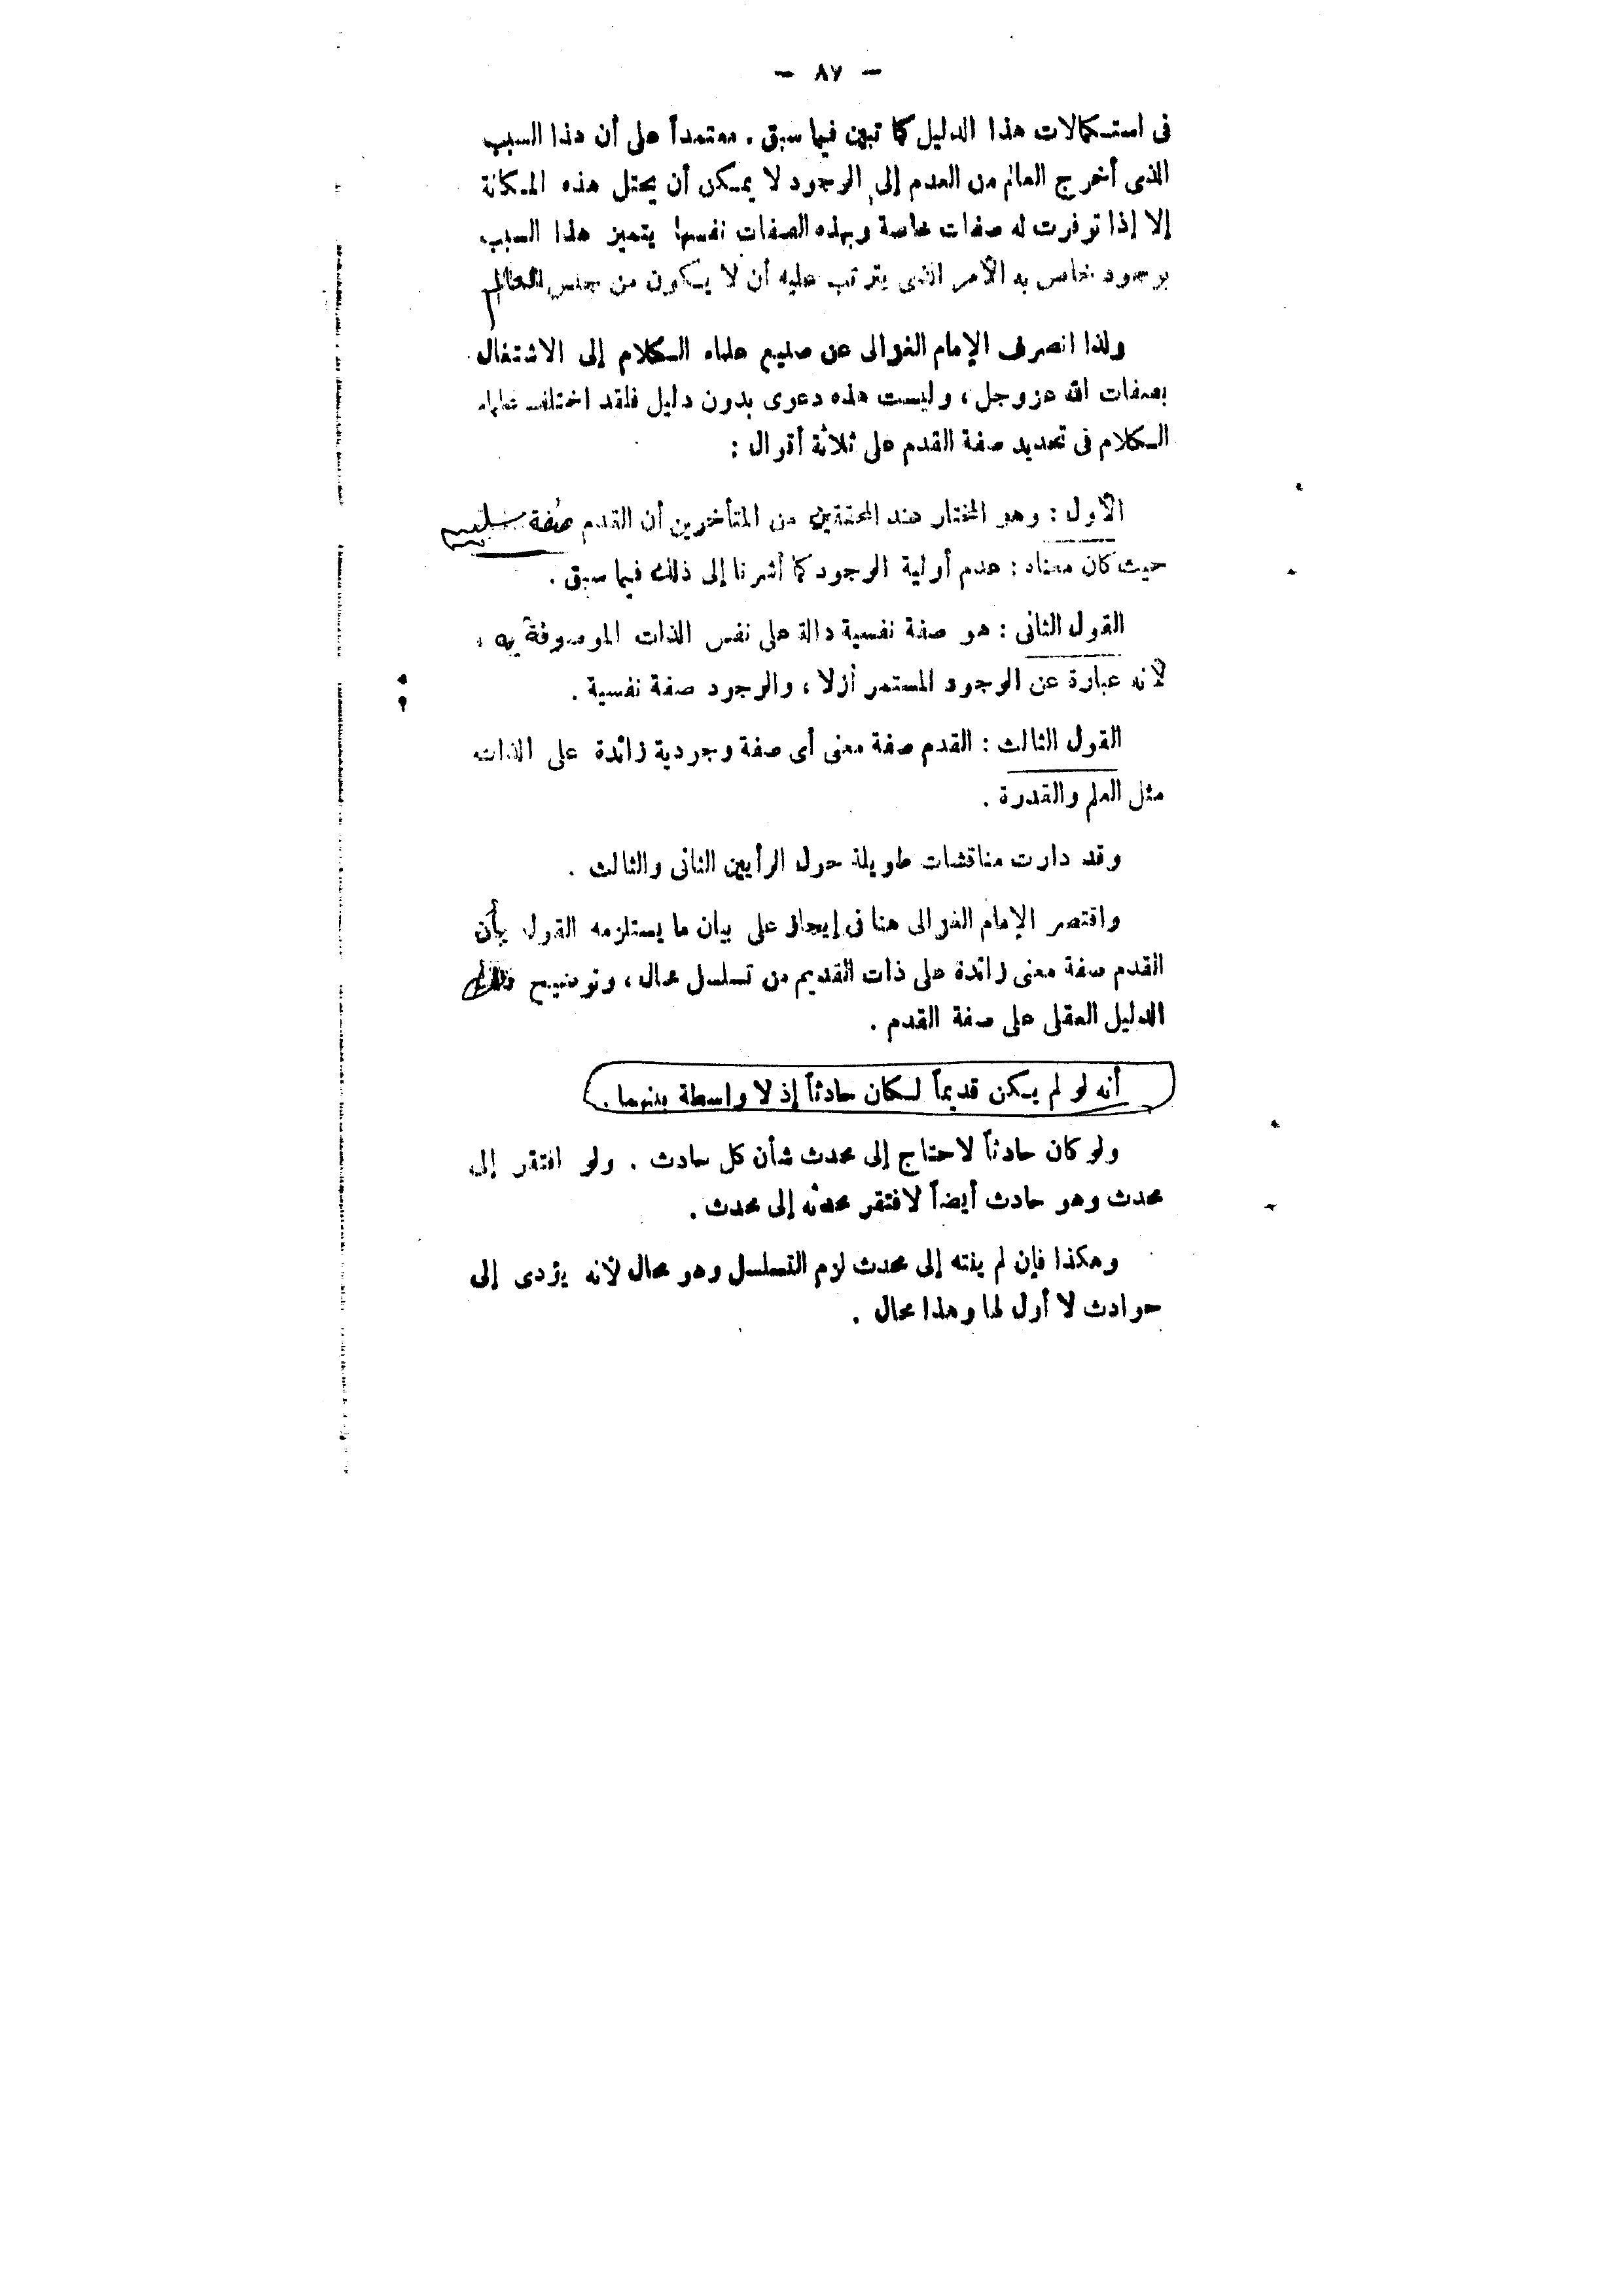 — ٨٧ —
فى استكمالات هذا الدليل كما تبين فيما سبق . معتمداً على أن هذا السبب
الذى أخرج العالم من العدم إلى الوجود لا يمكن أن يحتل هذه المكانة
إلا إذا توفرت له صفات خاصة وبهذه الصفات نفسها يتميز هذا السبب
بوجود خاص به الأمر الذى يترتب عليه أن لا يكون من جنس العالم
ولذا انصرف الإمام الغزالى عن صنيع علماء الكلام إلى الاشتغال
بصفات الله عز وجل ، وليست هذه دعوى بدون دليل فلقد اختلف علماء
الكلام فى تحديد صفة القدم على ثلاثة أقوال :
الأول : وهو المختار عند المحققين من المتأخرين أن القدم صفة سلبية
حيث كان معناه : عدم أولية الوجود كما أشرنا إلى ذلك فيما سبق .
القول الثانى : هو صفة نفسية دالة على نفس الذات الموصوفة به ،
لأنه عبارة عن الوجود المستمر أزلا ، والوجود صفة نفسية .
القول الثالث : القدم صفة معنى أى صفة وجودية زائدة على الذات
مثل العلم والقدرة .
وقد دارت مناقشات طويلة حول الرأيين الثانى والثالث .
واقتصر الإمام الغزالى هنا فى إيجاز على بيان ما يستلزمه القول بأن
القدم صفة معنى زائدة على ذات القديم من تسلسل محال ، وتوضيح ذلك
الدليل العقلى على صفة القدم .
أنه لو لم يكن قديماً لكان حادثاً إذ لا واسطة بينهما .
ولو كان حادثاً لاحتاج إلى محدث شأن كل حادث . ولو افتقر إلى
محدث وهو حادث أيضاً لافتقر محدثه إلى محدث .
وهكذا فإن لم ينته إلى محدث لزم التسلسل وهو محال لأنه يؤدى إلى
حوادث لا أول لها وهذا محال .